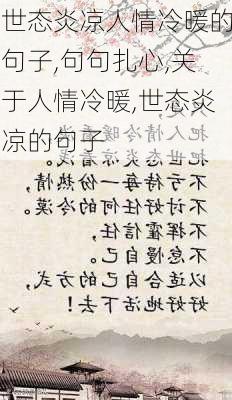 世态炎凉人情冷暖的
句子,句句扎心,关
于人情冷暖,世态炎
凉的句子
把人情冷暖看
把世态炎凉看浅。
不亏待每一份热情,
不讨好任何的冷漠。
不挥霍信任,
不怠慢自己。
以适合自己的方式,
好好地活下去!